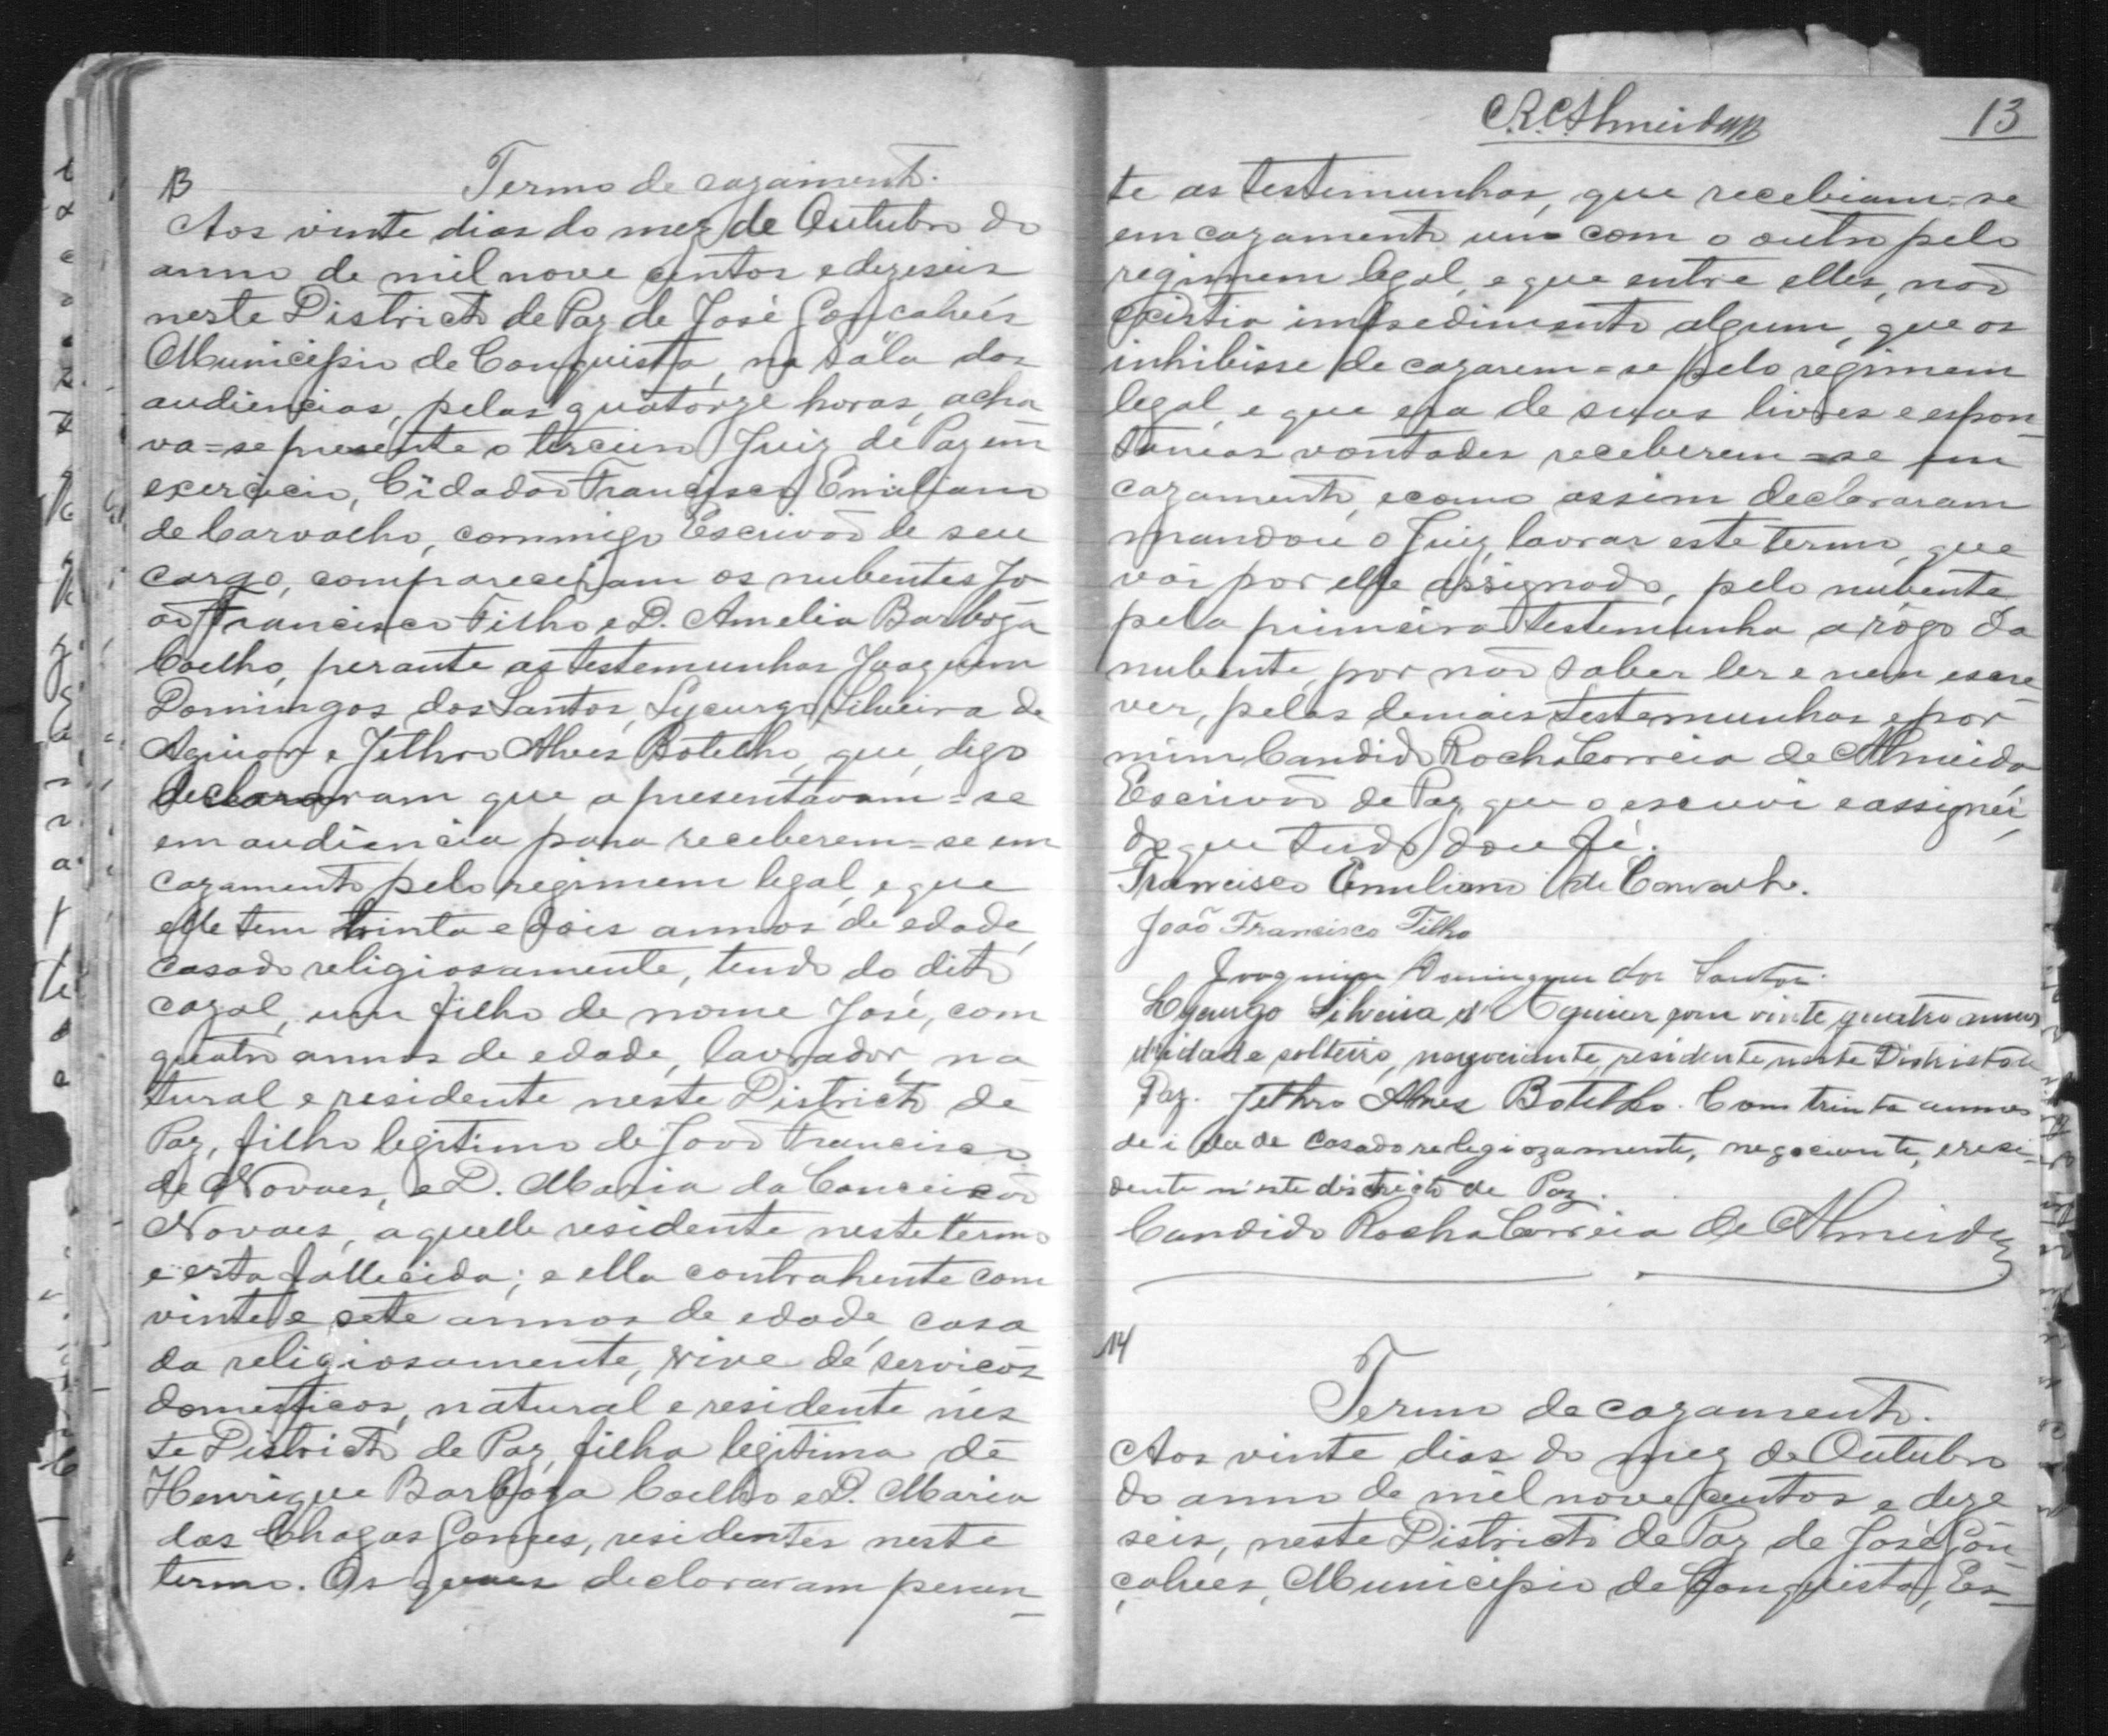 13
Termo de cazamento.
Aos vinte dias do mez de Outubro do
anno de mil nove centos e dezeseis
neste Districto de Paz de José Gonçalves
Municipio de Conquista, na sala das
audiencias, pelas quatorze horas, acha
va=se presente o terceiro Juiz de Paz em
exercicio, Cidadão Francisco Emiliano
de Carvalho, commigo Escrivão de seu
cargo, compareceram os nubentes Jo
ão Francisco Filho e D. Amelia Barboza
Coelho, perante as testemunhas Joaquim
Domingos dos Santos, Lycurgo Silveira de
Aguiar e Jethro Alves Botelho, que, digo
declararam que apresentavam=se
em audiencia para receberem=se em
cazamento pelo regimem legal, e que
elle tem trinta e dois annos de edade,
casado religiosamente, tendo do dito
cazal, um filho de nome José, com
quatro annos de edade, lavrador, na
tural e residente neste Districto de
Paz, filho legitimo de João Francisco
de Novaes, e D. Maria da Conceição
Novaes, aquelle residente neste termo
e esta fallecida; e ella contrahente com
vinte e sete annos de edade, casa
da religiosamente, vive de serviços
domesticos, natural e residente nes
te Districto de Paz, filha legitima de
Henrique Barboza Coelho e D. Maria
das Chagas Gomes, residentes neste
termo. Os quaes declararam peran-
C.R.C.Almeida
13
te as testemunhas, que recebiam=se
em cazamento um com o outro pelo
regimem legal, e que entre elles, não
existia impedimento algum, que os
inhibisse de cazarem=se pelo regimem
legal, e que era de suas livres e espon-
taneas vontades receberem=se em
cazamento, e como assim declararam
mandou o Juiz lavrar este termo, que
vai por elle assignado, pelo nubente
pela primeira testemunha a rogo da
nubente, por não saber ler e nem escre-
ver, pelas demais testemunhas e por
mim Candido Rocha Correia de Almeida
Escrivão de Paz que o escrevi e assignei,
do que tudo dou fé.
Francisco Emiliano de Carvalho.
João Francisco Filho
Joaquim Domingues dos Santos.
Lycurgo Silveira d'Aguiar com vinte quatro annos
d'idade solteiro, negociante, residente neste Districto de
Paz. Jethro Alves Botelho. Com trinta annos
de idade casado religiozamente, negociante, e resi-
dente n'este districto de Paz.
Candido Rocha Correia de Almeida
14
Termo de cazamento.
Aos vinte dias do mez de Outubro
do anno de mil nove centos e deze
seis, neste Districto de Paz de José Gon-
çalves, Municipio de Conquista, Es-